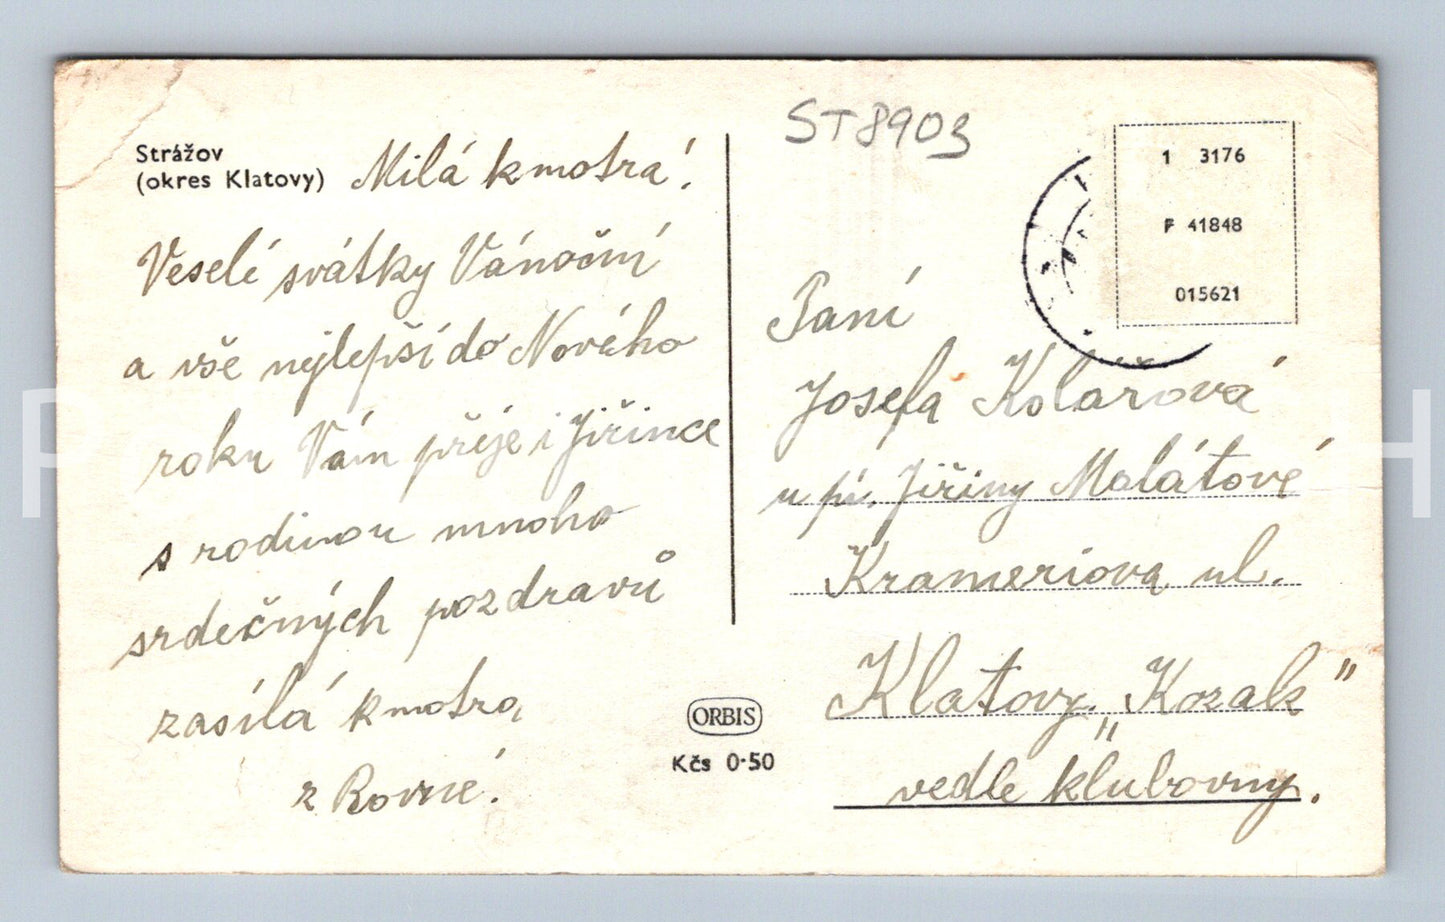 ST8903
Strážov
(okres Klatovy)
Milá kmotra!
Veselé svátky Vánoční
a vše nejlepší do Nového
roku Vám přeje i Jiřince
s rodinou mnoho
srdečných pozdravů
zasílá kmotra
z Rovné.
ORBIS
Kčs 0·50
1 3176
F 41848
015621
Paní
Josefa Kolářová
u pí. Jiřiny Malátové
Krameriova ul.
Klatovy „Kozak"
vedle klubovny.